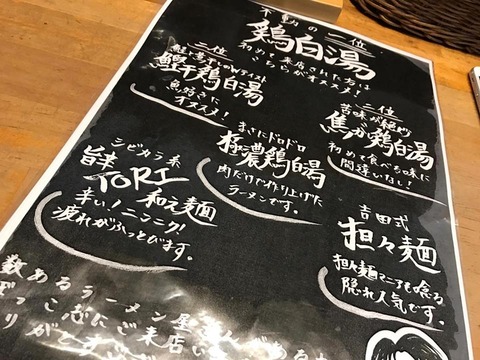 不動の一位
鶏白湯
初めて来店された方は
こちらがオススメ!
三位
鰹と煮干しのWテイスト
鰹干鶏白湯
魚好きに
オススメ!
二位
苦味が絶妙
焦がし鶏白湯
初めて食べる味に
間違いなし!
まさにドロドロ
極濃鶏白湯
肉だけで作り上げた
ラーメンです。
シビカラ系
旨辛
TORI
和え麺
辛い!ニンニク!
疲れがふっとびます。
吉田式
担々麺
担々麺マニアも唸る
隠れ人気です。
数あるラーメン屋